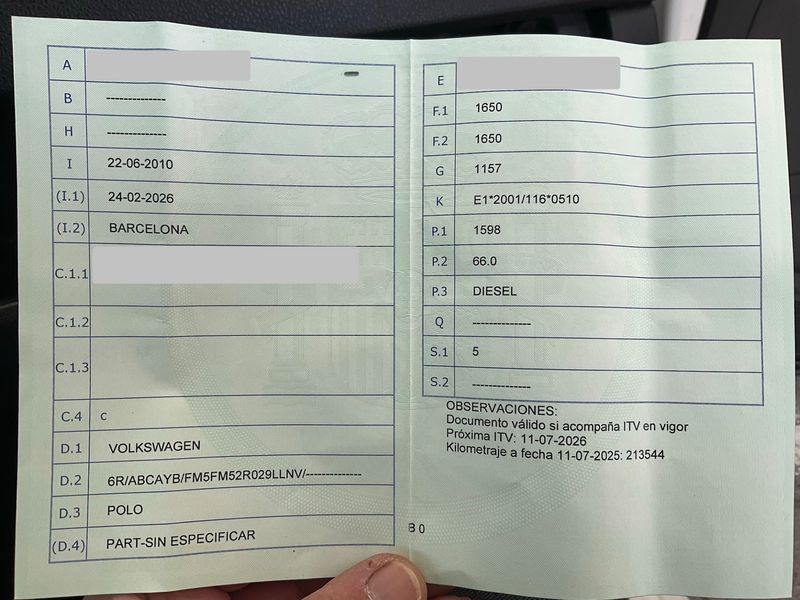 A
B --------------
H --------------
I 22-06-2010
(I.1) 24-02-2026
(I.2) BARCELONA
C.1.1
C.1.2
C.1.3
C.4 c
D.1 VOLKSWAGEN
D.2 6R/ABCAYB/FM5FM52R029LLNV/--------------
D.3 POLO
(D.4) PART-SIN ESPECIFICAR
E
F.1 1650
F.2 1650
G 1157
K E1*2001/116*0510
P.1 1598
P.2 66.0
P.3 DIESEL
Q --------------
S.1 5
S.2 --------------
OBSERVACIONES:
Documento válido si acompaña ITV en vigor
Próxima ITV: 11-07-2026
Kilometraje a fecha 11-07-2025: 213544
B 0